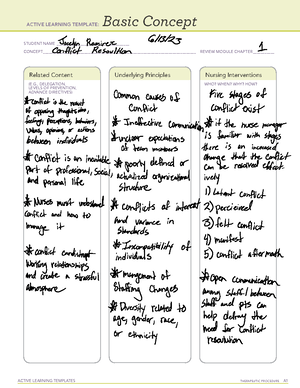 ACTIVE LEARNING TEMPLATE: Basic Concept
STUDENT NAME Jocelyn Ramirez 6/13/23
CONCEPT Conflict Resolution REVIEW MODULE CHAPTER 1
Related Content
(E.G., DELEGATION,
LEVELS OF PREVENTION,
ADVANCE DIRECTIVES)
* conflict is the result
of opposing thoughts, ideas,
feelings, perceptions, behaviors,
values, opinions, or actions
between individuals
* Conflict is an inevitable
part of professional, social,
and personal life
* Nurses must understand
conflict and how to
manage it
* conflict can disrupt
working relationships
and create a stressful
atmosphere
Underlying Principles
Common causes of
Conflict
* Ineffective communication
* unclear expectations
of team members
* poorly defined or
actualized organizational
structure
* conflicts of interest
and variance in
standards
* Incompatibility of
individuals
* management of
Staffing Changes
* Diversity related to
age, gender, race,
or ethnicity
Nursing Interventions
WHO? WHEN? WHY? HOW?
Five stages of
conflict exist
* if the nurse manager
is familiar with stages
there is an increased
change that the conflict
can be resolved effect
ively
1) latent conflict
2) perceived
3) felt conflict
4) manifest
5) conflict aftermath
* Open communication
among staff & between
staff and pts can
help defray the
need for conflict
resolution
ACTIVE LEARNING TEMPLATES THERAPEUTIC PROCEDURE A1